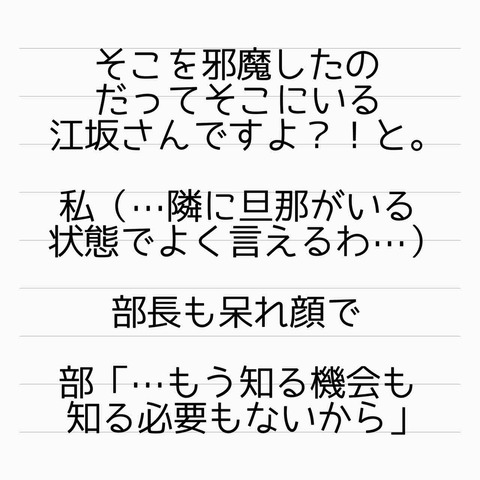 そこを邪魔したの
だってそこにいる
江坂さんですよ？！と。
私（…隣に旦那がいる
状態でよく言えるわ…）
部長も呆れ顔で
部「…もう知る機会も
知る必要もないから」